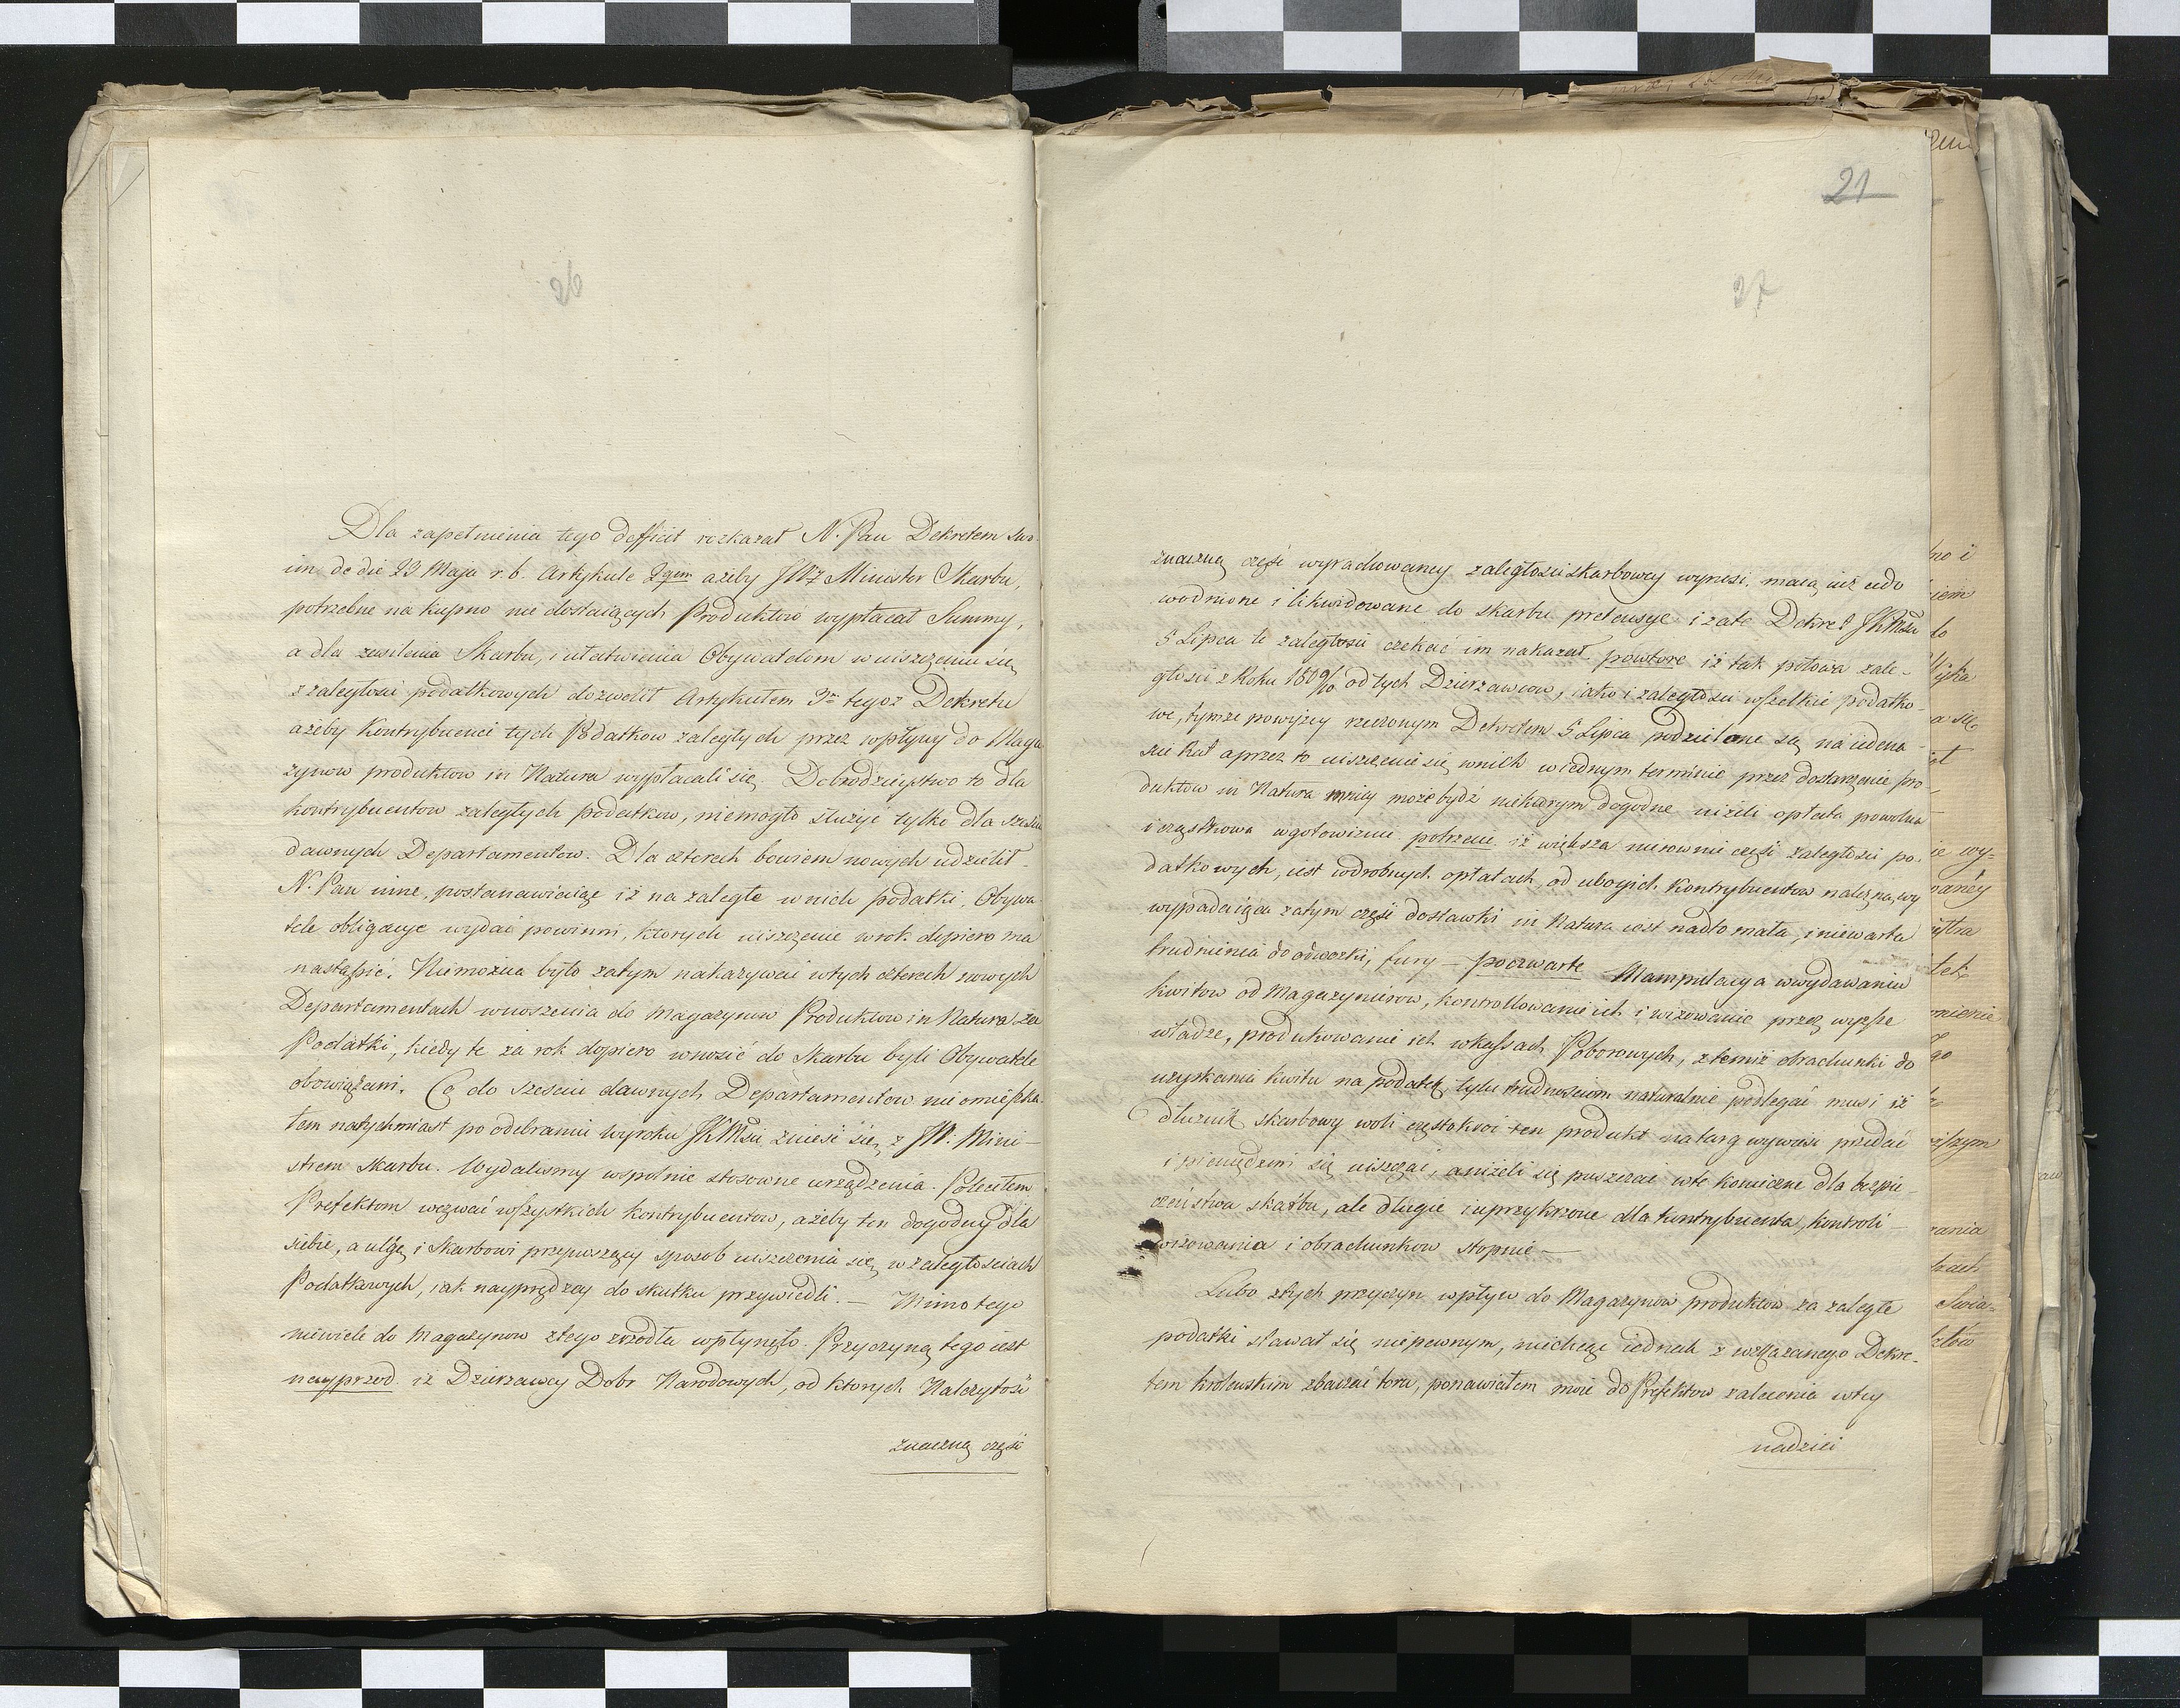 26
Dla zapełnienia tego defficit rozkazał N. Pan Dekretem swo-
im de die 23 Maja r. b. Artykule 2gim ażeby JWż Minister Skarbu,
potrzebne na kupno nie dostaiących Produktow wypłacał Summy,
a dla zasilenia Skarbu, i ułatwienia Obywatelom w uiszczeniu się
z zaległosci podatkowych dozwolił Artykułem 3m tegoż Dekretu
ażeby Kontrybuenci tych Podatkow zaległych przez wpływy do Maga
zynow produktow in Natura wypłacali się. Dobrodzieystwo to dla
kontrybuentow zaległych podatkow, niemogło służyć tylko dla sześciu
dawnych Departamentow. Dla czterech bowiem nowych udzielił
N. Pan inne, postanawiaiąc iż na zaległe w nich podatki, Obywa
tele obligacye wydać powinni, ktorych uiszczenie w rok dopiero ma
nastąpić. Niemożna było zatym nakazywać w tych czterech nowych
Departamentach wnoszenia do Magazynow Produktow in Natura za
Podatki, kiedy te za rok dopiero wnosić do Skarbu byli Obywatele
obowiązani. Co do sześciu dawnych Departamentow nieomieszka
łem natychmiast po odebraniu Wyroku JKMści znieść się z JW. Mini-
strem Skarbu. Wydalismy wspolnie stosowne urządzenia. Poleciłem
Prefektom wezwać wszystkich Kontrybuentow, ażeby ten dogodny dla
siebie, a ulgę i Skarbowi przynoszący sposob uiszczenia się w zaległościach
Podatkowych, iak nayprędzey do skutku przywiedli. — Mimo tego
niewiele do Magazynow z tego zrzodła wpłynęło. Przyczyną tego iest
nayprzod iż Dzierzawcy Dobr Narodowych, od ktorych Należytość
znaczną część
21
27
znaczną część wyrachowaney zaległosci skarbowey wynosi, maią iuż udo
wodnione i likwidowane do skarbu pretensye i zate Dekret JKMści
5 Lipca te zaległosci czekać im nakazał. powtore iż tak połowa zale-
głosci z Roku 1809/10 od tych Dzierzawcow, iako i zaległosci wszelkie podatko-
we, tymże powyżey rzeczonym Dekretem 5 Lipca podzielone są na iedena-
ście Rat a przez to uiszczenie się w nich w iednym terminie przez dostarczenie pro-
duktow in Natura mniey może bydź niektorym dogodne niżeli opłata powolna
i cząstkowa w gotowiznie. potrzecie iż większa nierownie część zaległosci po-
datkowych, iest w drobnych opłatach, od ubogich Kontrybuentow należna, wy
wypadaiąca zatym część dostawki in Natura iest nadto mała, i niewarta
trudnienia do odwozki, fury — poczwarte Manipulacya w wydawaniu
kwitow od Magazynierow, kontrollowanie ich i wizowanie przez wyższe
władze, produkowanie ich w kassach Poborowych, z temiż obrachunki do
uzyskania kwitu na podatek, tylu trudnosciom naturalnie podlegać musi iż
dłużnik skarbowy woli częstokroć ten produkt na targ wywieść przedać
i pieniędzmi się uiszczać, aniżeli się puszczać w te konieczne dla bezpie-
czeństwa skarbu, ale długie i uprzykrzone dla kontrybuenta, kontroli-
wizowania i obrachunkow stopnie —
Lubo z tych przyczyn wpływ do Magazynow produktow za zaległe
podatki stawał się niepewnym, niechcąc iednak z wskazanego Dekre-
tem krolewskim zbaczać toru, ponawiałem moie do Prefektow zalecenia w tey
nadziei